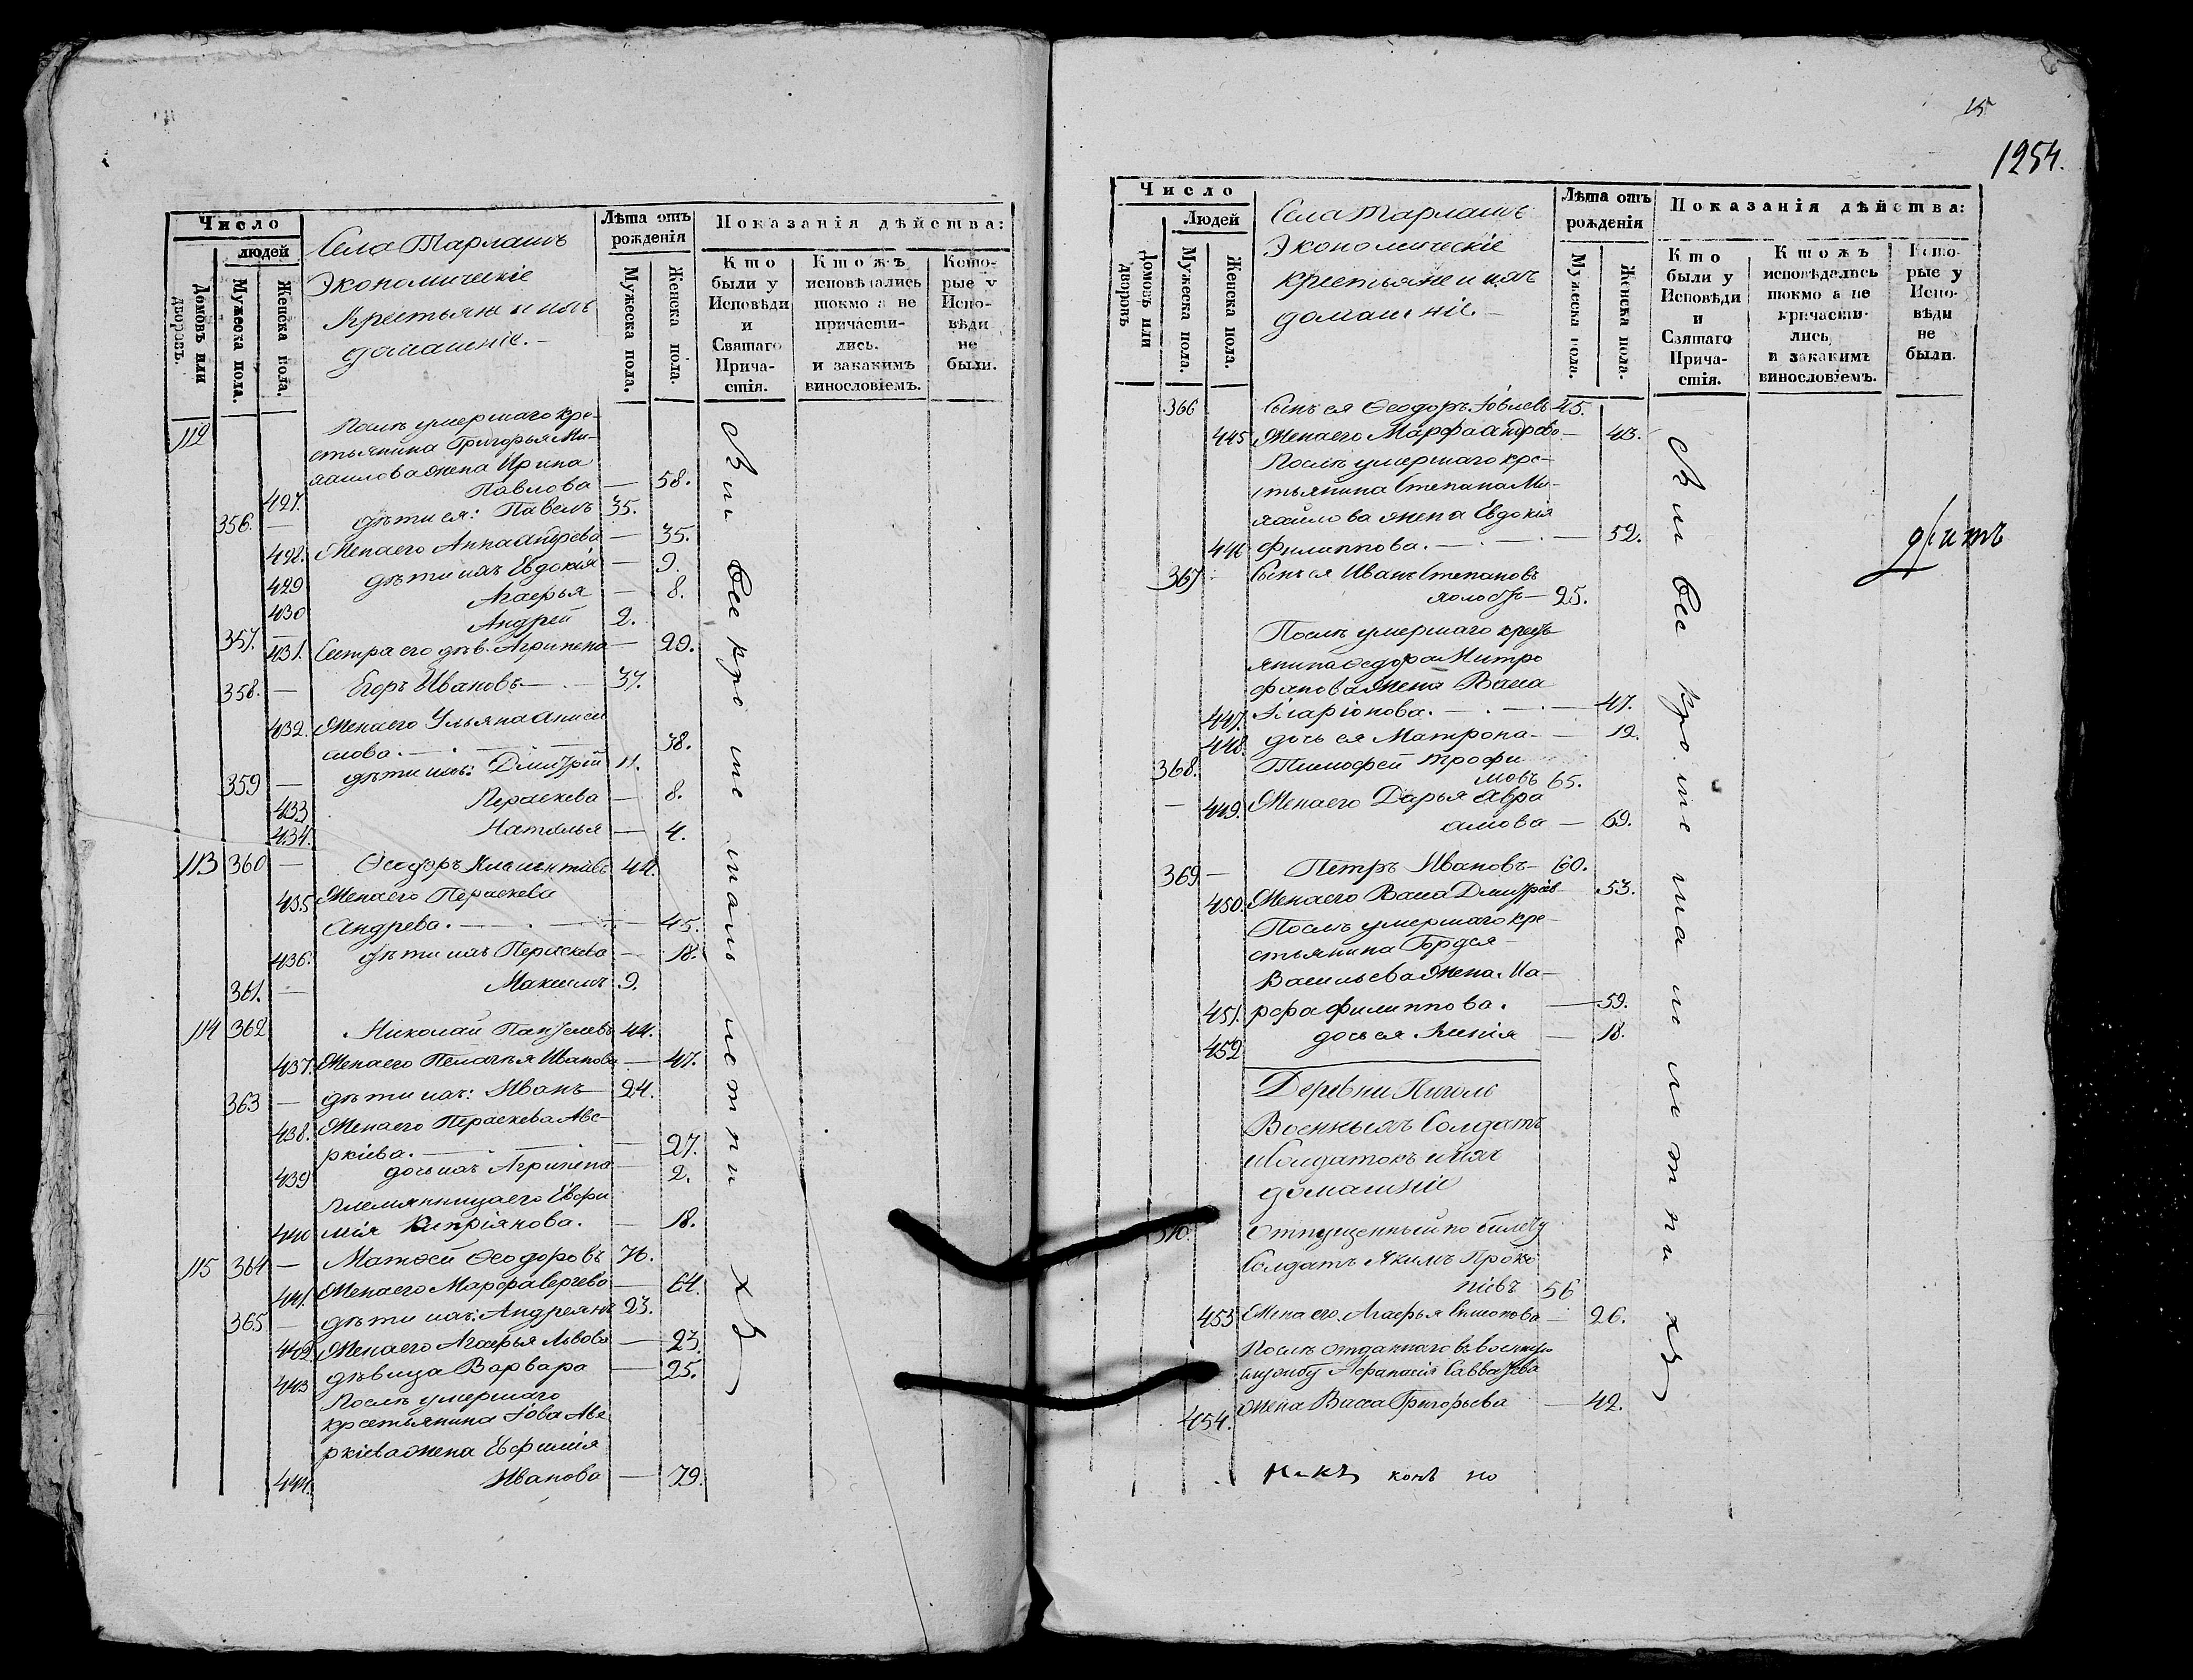 Число
людей
Домовъ или дворовъ.
Мужеска пола.
Женска пола.
Села Тарлашъ
Экономическіе
Крестьяне и ихъ
домашніе. -
Лѣта отъ рожденія
Мужеска пола.
Женска пола.
Показанія дѣйства:
Кто были у Исповѣди и Святаго Прича-стія.
Ктожъ исповѣдались токмо а не причасти-лись. и закакимъ винословіемъ.
Кото-рые у Испо-вѣди не были.
112 Послѣ умершаго кре-
стьянина Григорья Ми-
хаилова жена Ирина
427. Павлова — 58.
356. — дѣти ея: Павелъ 35.
428. Жена его Анна Андрева — 35.
429 дѣти ихъ Евдокія — 9.
430 Агафья — 8.
357. — Андрей 2.
431. Сестра его дѣв. Агрипена — 29.
358. — Егоръ Ивановъ — 37.
432. Жена его Ульяна Аниси
мова. — 38.
359 — дѣти ихъ: Дмитрій 11.
433 Пераскева — 8.
434. Наталья — 4.
113 360 — Ѳеодоръ Климентовъ 44.
435 Жена его Пераскева
Андрева. — 45.
436. дѣти ихъ Пераскева — 18.
361. — Максимъ 9.
114 362 Николай Пантелевъ 44.
437. Жена его Пелагья Иванова — 47.
363 — дѣти ихъ: Иванъ 24.
438. Жена его Пераскева Аве-
ркіева. — 27.
439 дочь ихъ Агрипена — 2.
племянница его Евфи
440 мія Кипріянова. — 18.
115 364 — Матѳей Ѳеодоровъ 76.
441. Жена его Марфа Сергева — 64.
365 — дѣти ихъ: Андреянъ 23.
442. Жена его Агафья Львова — 23.
443 дѣвица Варвара — 25.
Послѣ умершаго
крестьянина Іова Аве
ркіева жена Евфимія
444. Иванова — 79.
всѣ кро мѣ мало лѣтни хъ
15
1254.
Число
Людей
Домовъ или дворовъ
Мужеска пола.
Женска пола.
Села Тарлашъ
Экономическіе
крестьяне и ихъ
домашніе. -
Лѣта отъ рожденія
Мужеска пола.
Женска пола.
Показанія дѣйства:
Кто были у Исповѣди и Святаго Прича-стія.
Ктожъ исповѣдались токмо а не причасти-лись, и закакимъ винословіемъ.
Кото-рые у Испо-вѣди не были.
366 Сынъ ея Ѳеодоръ Іовлевъ 45.
445 Жена его Марфа Андрево — 43.
Послѣ умершаго кре-
стьянина Степана Ми-
хайлова жена Евдокія
446 Филиппова. — 52.
367 Сынъ ея Иванъ Степановъ
холостъ — 25.
Послѣ умершаго крест
янина Ѳедора Митро
фанова жена Васса
447. Іларіонова. — 47.
448. дочь ея Матрона — 12.
368. Тимофей Трофи
мовъ 65.
— 449. Жена его Дарья Авра
амова — 69.
369 — Петръ Ивановъ — 60.
450. Жена его Васса Дмитріев — 53.
Послѣ умершаго кре-
стьянина Гордея
Васильева жена Ма-
451. рфа Филиппова. — 59.
452 дочь ея Ксенія — 18.
Деревни
Военныхъ Солдатъ
и Солдатокъ и ихъ
домашніе
370. Отпущенный по билету
Солдатъ Якимъ Проко
піевъ 56
453 Жена его Агафья Симонова — 26.
Послѣ отданнаго въ военную
службу Афанасія Савватѣева
454. Жена Васса Григорьева — 42.
всѣ кро мѣ мало лѣтни хъ